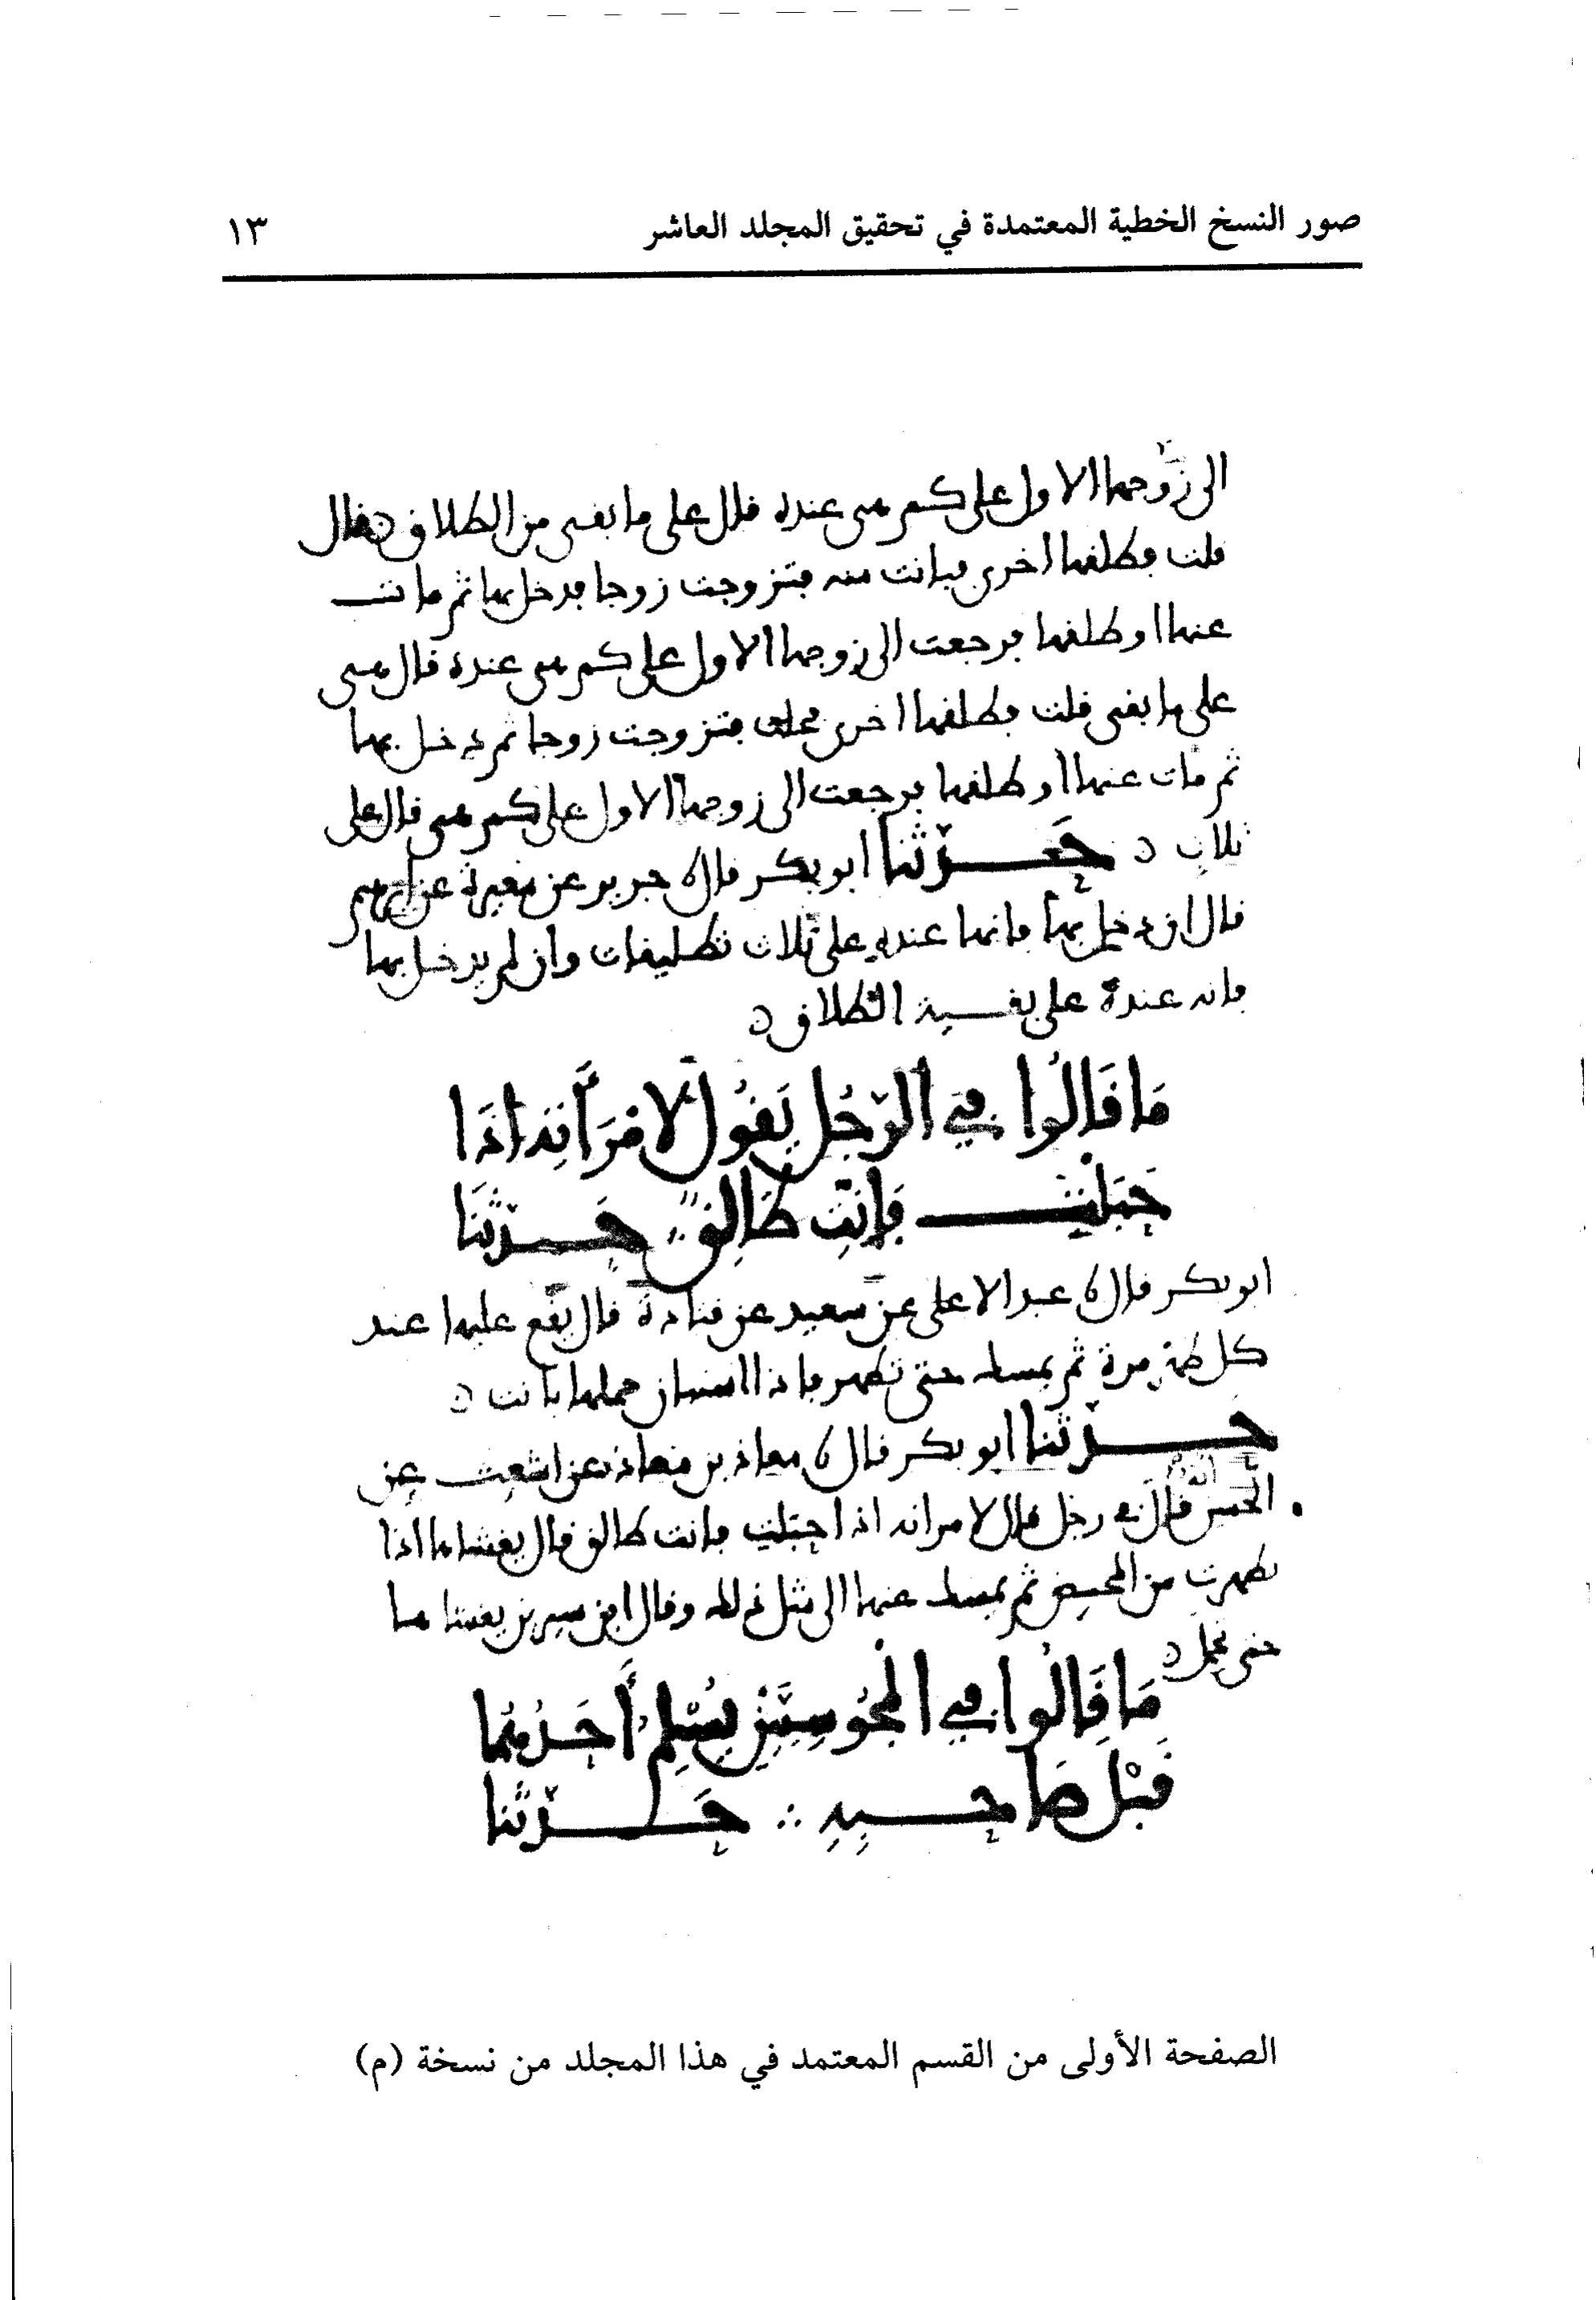 صور النسخ الخطية المعتمدة في تحقيق المجلد العاشر ١٣
الى زوجها الاول على كم هي عنده قال على ما بقي من الطلاق قال
قلت فطلقها اخرى فبانت منه فتزوجت زوجا فدخل بها ثم مات
عنها او طلقها فرجعت الى زوجها الاول على كم هي عنده قال هي
على ما بقي قلت فطلقها اخرى فتزوجت زوجا ثم دخل بها
ثم مات عنها او طلقها فرجعت الى زوجها الاول على كم هي قال على
ثلاث حَدّثنا ابو بكر قال نا جرير عن مغيرة عن ابرهيم
قال ان دخل بها فانها عنده على ثلاث تطليقات وان لم يدخل بها
فانه عنده على بقية الطلاق
مَا قَالُوا في الرّجُل يَقُول لامْرَأَتِه اذَا
حَبَلْتِ فَانتِ طَالِق حَدّثَنَا
ابو بكر قال نا عبد الاعلى عن سعيد عن قتادة قال يقع عليها عند
كل طهر مرة ثم يمسك حتى تطهر فاذا استبان حملها بانت
حدّثنا ابو بكر قال نا معاذ بن معاذ عن اشعث عن
الحسن قال في رجل قال لامراته اذا حبلت فانت طالق قال يغشاها اذا
تطهرت من المحيض ثم يمسك عنها الى مثل ذلك وقال ابن سيرين يغشاها
حتى تحمل
مَا قَالُوا في المجُوسِيَّيْن يُسْلِمُ أَحَدُهُمَا
قَبْل صَاحِبِهِ حَدّثنا
الصفحة الأولى من القسم المعتمد في هذا المجلد من نسخة (م)